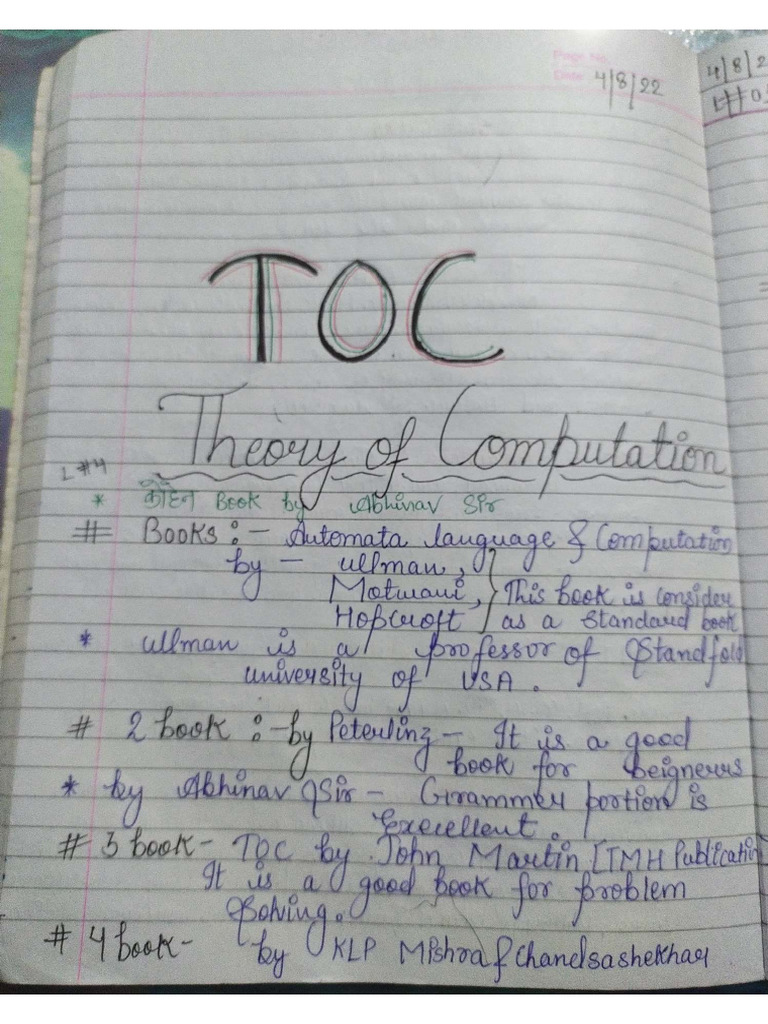 Page No.
Date 4/8/22
TOC
Theory of Computation
L#4
* कोहेन Book by Abhinav Sir
# Books :- Automata language & Computation
by - Ullman,
Motwani, This book is consider
Hopcroft as a standard book
* Ullman is a professor of Standfold
University of USA.
# 2 book :- by Peterling - It is a good
book for beignerrs
* by Abhinav Sir - Grammer portion is
Excellent.
# 3 book - TOC by John Martin [TMH Publication
It is a good book for problem
Solving.
# 4 book - by KLP Mishra & Chandsashekhar
4/8/2
L#0